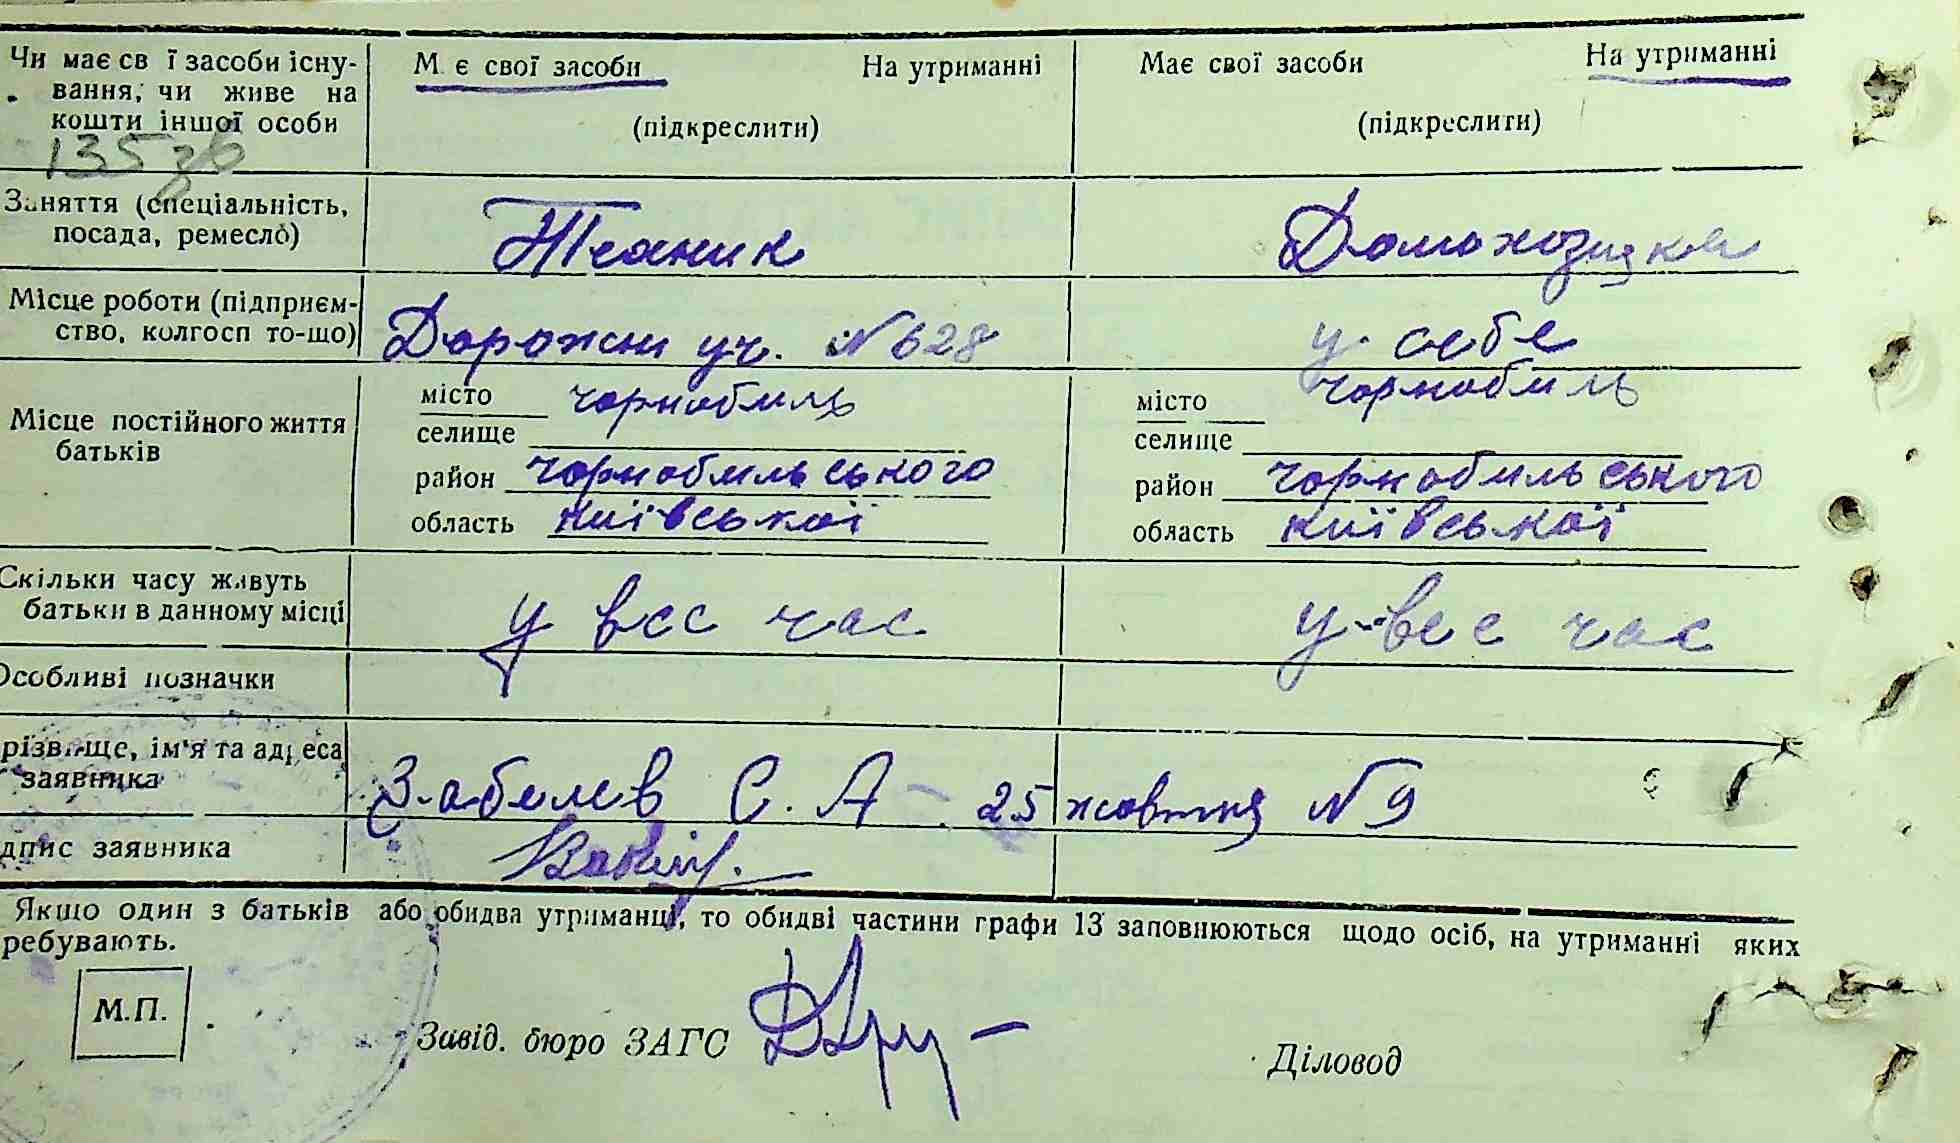 Чи має св ї засоби існу- М є свої засоби На утриманні Має свої засоби На утриманні
вання, чи живе на
кошти іншої особи (підкреслити) (підкреслити)
135
Заняття (спеціальність, Домохозяйка
посада, ремесло)
Місце роботи (підприєм- Дорожни уч. № 628 у себе
ство, колгосп то-що)
Місце постійного життя місто чорнобиль місто чорнобиль
батьків селище селище
район чорнобильського район чорнобильського
область київської область київської
Скільки часу живуть у вес час у вес час
батьки в данному місці
Особливі позначки
різвище, ім'я та адреса
заявника Забелев С. А - 25 жовтня № 9
дпис заявника
Якщо один з батьків або обидва утриманці, то обидві частини графи 13 заповнюються щодо осіб, на утриманні яких
ребувають.
М.П.
Завід. бюро ЗАГС Діловод